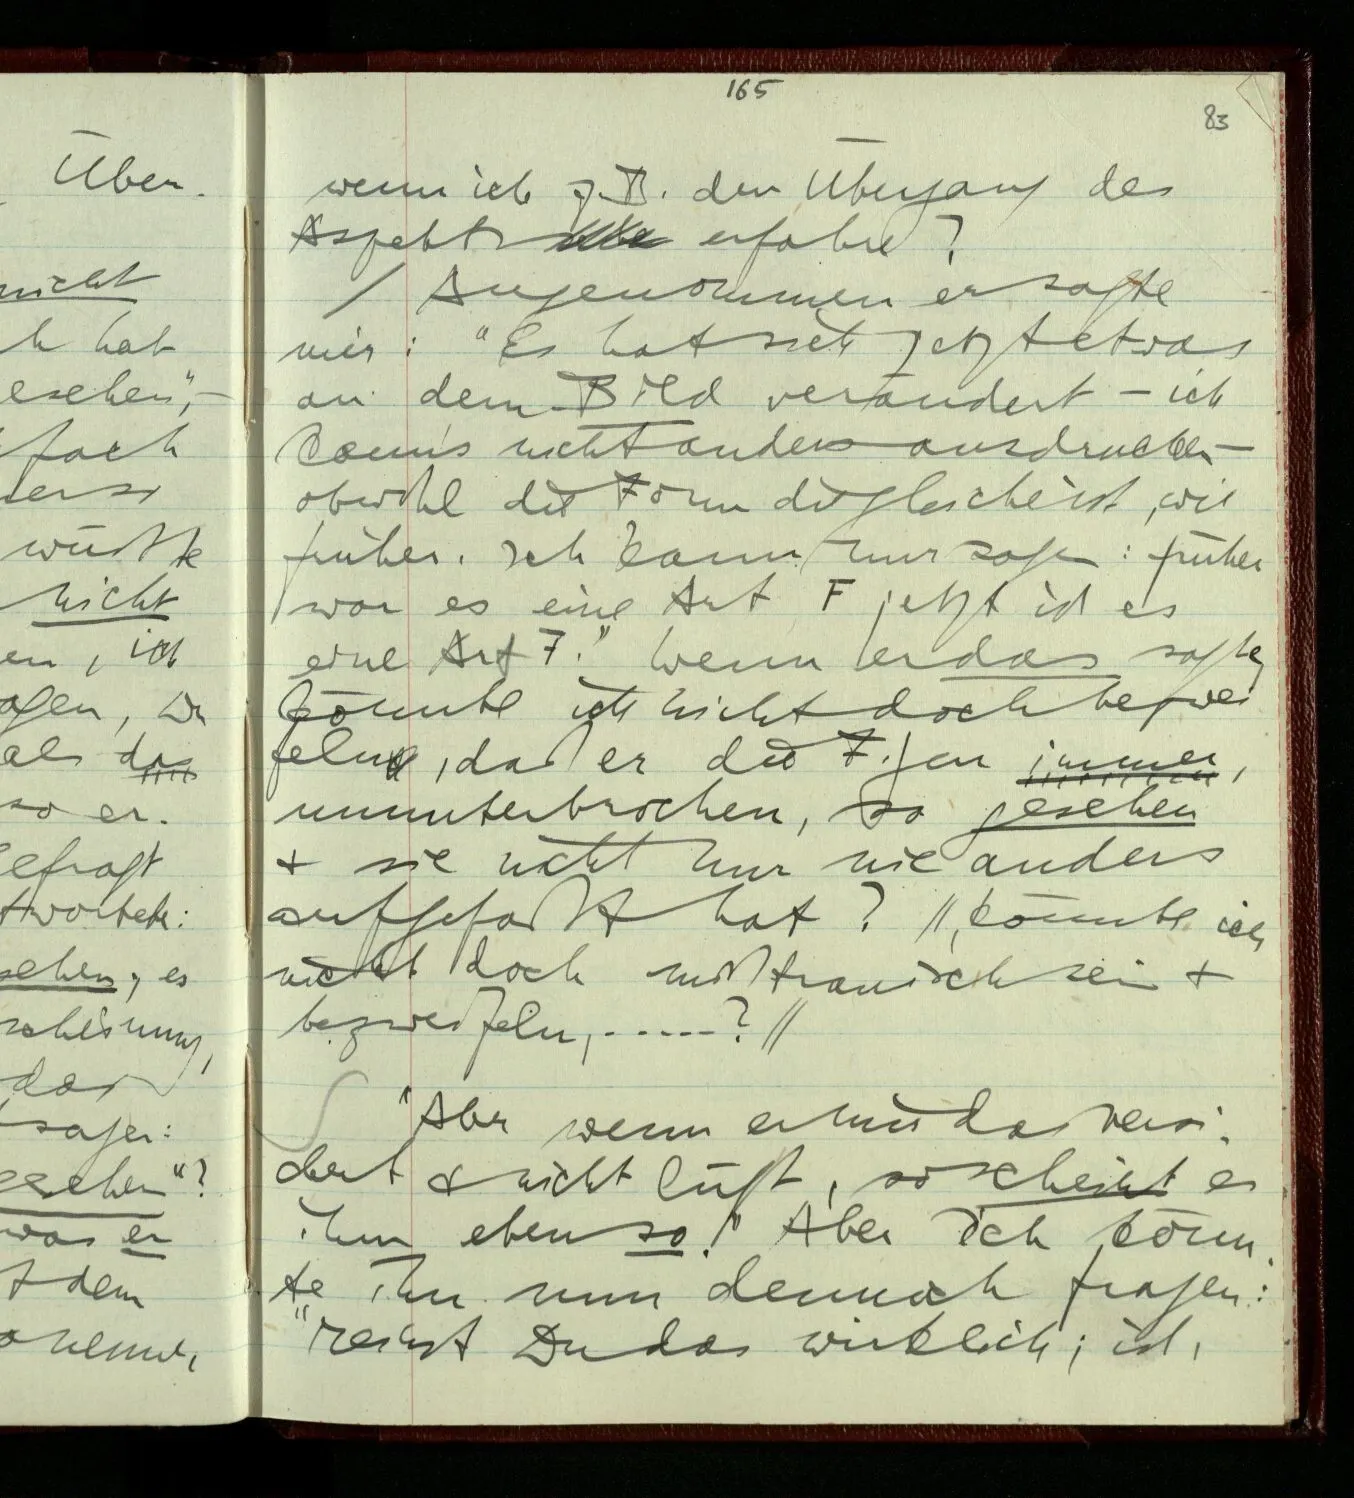 165
83
Über-
nicht
hat
esehen",–
fach
wüßte
nicht
en, ich
agen, Du
als das
so er-
gefragt
twortete:
sehen; es
scheinung,
das
sagen:
esehen"?
was er
t dem
wenn ich z.B. den Übergang des
Aspekts erfahre?
/ Angenommen er sagte
mir: "Es hat sich jetzt etwas
an dem Bild verändert – ich
kann's nicht anders ausdrücken –
obwohl die Form die gleiche ist, wie
früher. Ich kann nur sagen: früher
war es eine Art F jetzt ist es
eine Art 7." Wenn er das sagte,
könnte ich nicht doch bezwei-
feln, daß er die Figur immer,
ununterbrochen, so gesehen
+ sie nicht nur nie anders
aufgefaßt hat? //, könnte ich
nicht doch mißtrauisch sein +
bezweifeln, .....? //
∫ "Aber wenn er mir das versi-
chert & nicht lügt, so scheint es
ihm eben so." Aber ich könn-
te ihn nun dennoch fragen:
"Meinst Du das wirklich; ist,